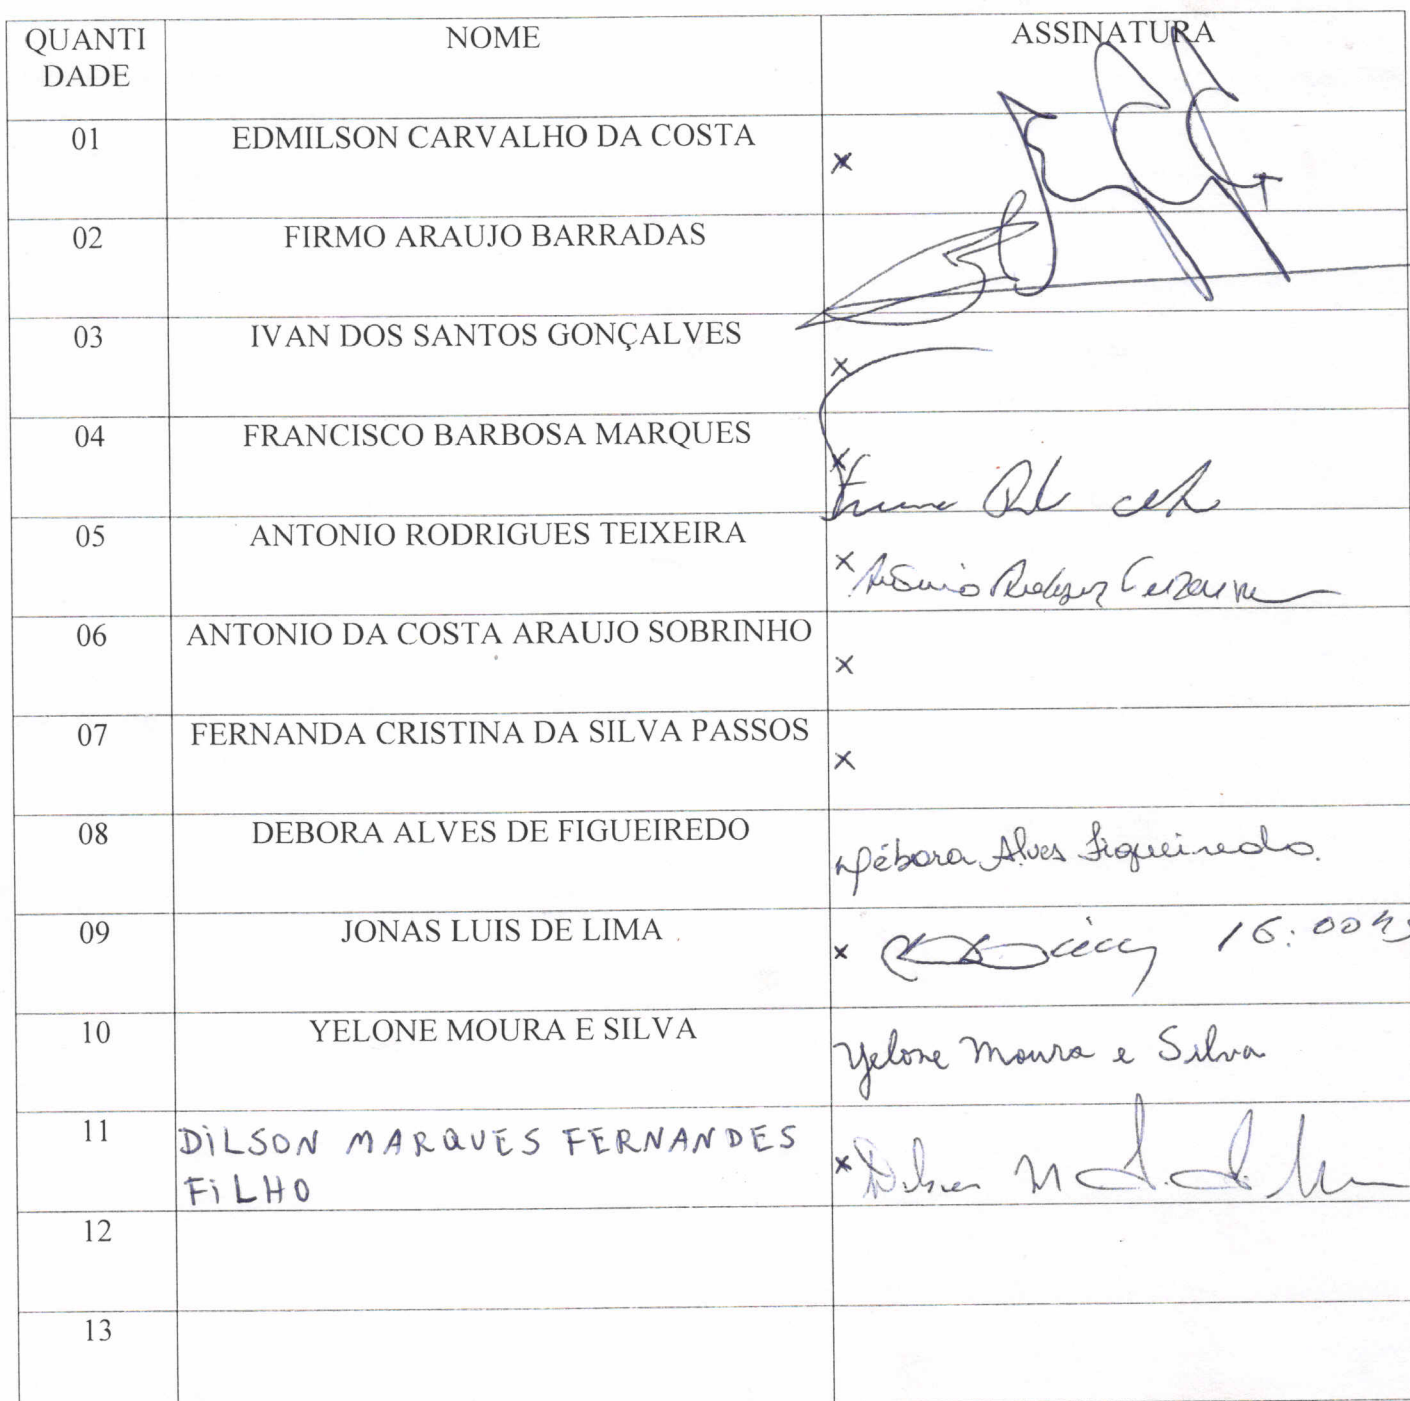 QUANTI
DADE
NOME
ASSINATURA
01
EDMILSON CARVALHO DA COSTA
×
02
FIRMO ARAUJO BARRADAS
03
IVAN DOS SANTOS GONÇALVES
×
04
FRANCISCO BARBOSA MARQUES
×
05
ANTONIO RODRIGUES TEIXEIRA
×
06
ANTONIO DA COSTA ARAUJO SOBRINHO
×
07
FERNANDA CRISTINA DA SILVA PASSOS
×
08
DEBORA ALVES DE FIGUEIREDO
Débora Alves Figueiredo.
09
JONAS LUIS DE LIMA
× 16:00hs
10
YELONE MOURA E SILVA
Yelone Moura e Silva
11
DILSON MARQUES FERNANDES
FILHO
× Dilson M
12
13